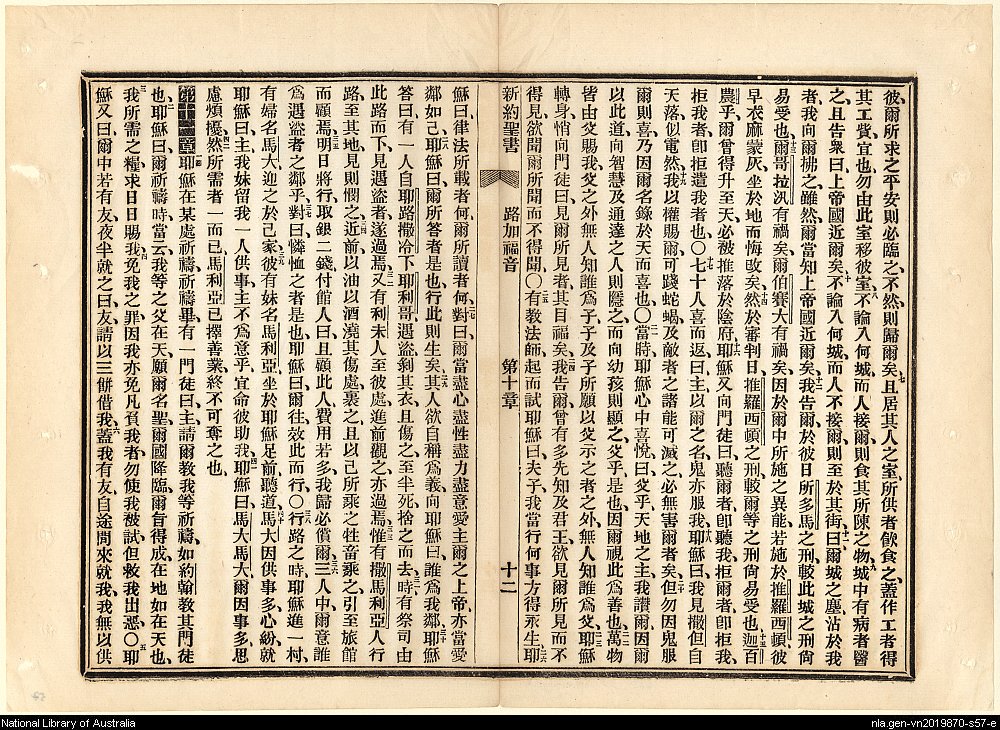 彼爾所求之平安則必臨之不然則歸爾矣且居其人之室所供者飲食之蓋作工者得
其工貲宜也勿由此室移彼室不論入何城而人接爾則食其所陳之物城中有病者醫
之且告衆曰上帝國近爾矣不論入何城而人不接爾則至於其街曰爾城之塵沾於我
者我向爾拂之雖然爾當知上帝國近爾矣我告爾於彼日所多馬之刑較此城之刑尙
易受也爾哥拉汛有禍矣爾伯賽大有禍矣因於爾中所施之異能若施於推羅西頓彼
早衣麻蒙灰坐於地而悔改矣然於審判日推羅西頓之刑較爾等之刑尙易受也迦百
農乎爾曾得升至天必被推落於陰府耶穌又向門徒曰聽爾者卽聽我拒爾者卽拒我
拒我者卽拒遣我者也〇七十八人喜而返曰主以爾之名鬼亦服我耶穌曰我見撒但自
天落似電然我以權賜爾可踐蛇蝎及敵者之諸能可滅之必無害爾者矣但勿因鬼服
爾則喜乃因爾名錄於天而喜也〇當時耶穌心中喜悅曰父乎天地之主我讚爾因爾
以此道向智慧及通達之人則隱之而向幼孩則顯之父乎是也因爾視此爲善也萬物
皆由父賜我父之外無人知誰爲子子及子所願以父示之者之外無人知誰爲父耶穌
轉身悄向門徒曰見爾所見者其目福矣我告爾曾有多先知及君王欲見爾所見而不
得見欲聞爾所聞而不得聞〇有教法師起而試耶穌曰夫子我當行何事方得永生耶
新約聖書 路加福音 第十章 十二
穌曰律法所載者何爾所讀者何對曰爾當盡心盡性盡力盡意愛主爾之上帝亦當愛
鄰如己耶穌曰爾所答者是也行此則生矣其人欲自稱爲義向耶穌曰誰爲我鄰耶穌
答曰有一人自耶路撒冷下耶利哥遇盜剝其衣且傷之至半死捨之而去時有祭司由
此路而下見遇盜者遂過焉又有利未人至彼處進前觀之亦過焉惟有撒馬利亞人行
路至其地見則憫之近前以油以酒澆其傷處裹之且以己所乘之牲畜乘之引至旅館
而顧焉明日將行取銀二錢付館人曰且顧此人費用若多我歸必償爾三人中爾意誰
爲遇盜者之鄰乎對曰憐恤之者是也耶穌曰爾往效此而行〇行路之時耶穌進一村
有婦名馬大迎之於己家彼有妹名馬利亞坐於耶穌足前聽道馬大因供事多心紛就
耶穌曰主我妹留我一人供事主不爲意乎宜命彼助我耶穌曰馬大馬大爾因事多思
慮煩擾然所需者一而已馬利亞已擇善業終不可奪之也
第十一章耶穌在某處祈禱祈禱畢有一門徒曰主請爾教我等祈禱如約翰教其門徒
也耶穌曰爾祈禱時當云我等之父在天願爾名聖爾國降臨爾旨得成在地如在天也
我所需之糧求日日賜我免我之罪因我亦免凡負我者勿使我被試但救我出惡〇耶
穌又曰爾中若有友夜半就之曰友請以三餅借我蓋我有友自途間來就我我無以供